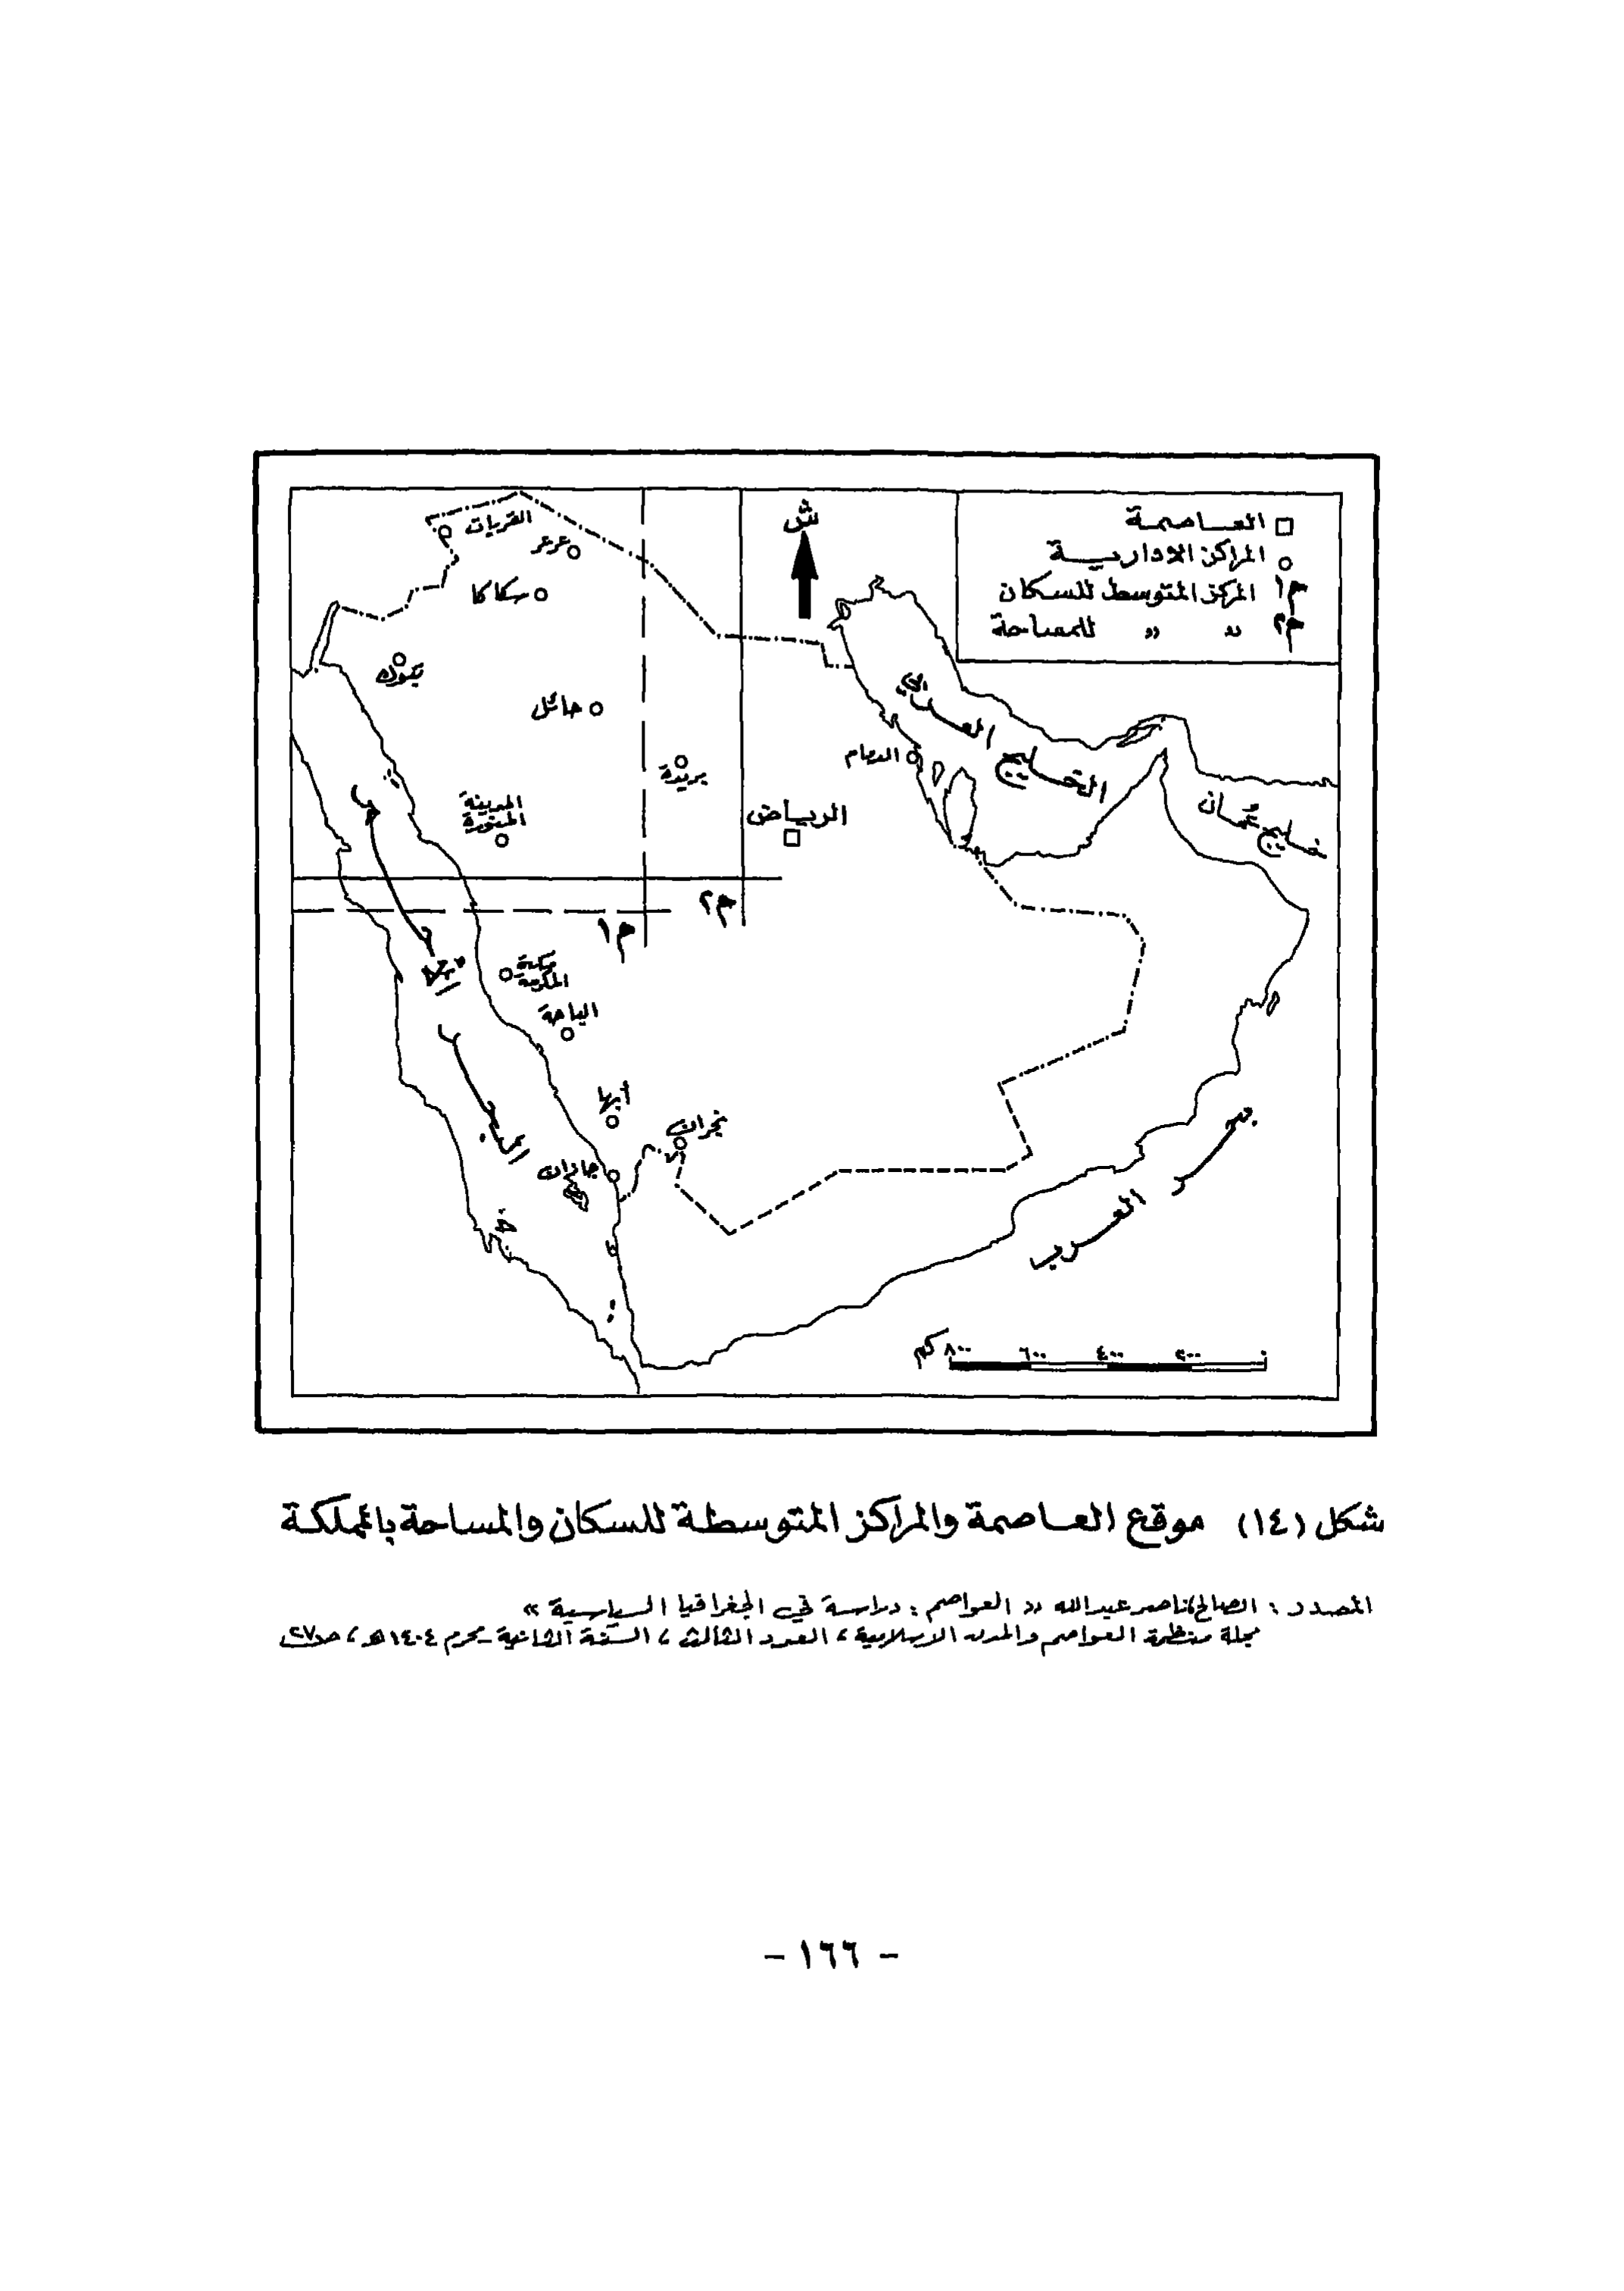 العاصمة
المراكز الادارية
م١ المركز المتوسط للسكان
م٢ " " للمساحة
ش
القريات
عرعر
سكاكا
تبوك
حائل
بريدة
المدينة
المنورة
الرياض
الدمام
الخليج العربي
خليج عُمان
م٢
م١
مكة
المكرمة
الباحة
أبها
نجران
جازان
البحر
الأحمر
بحر
العرب
٠ ٢٠٠ ٤٠٠ ٦٠٠ ٨٠٠ كم
شكل (١٤) موقع العاصمة والمراكز المتوسطة للسكان والمساحة بالمملكة
المصدر : الصالح، ناصر عبدالله " العواصم : دراسة في الجغرافيا السياسية "
مجلة منظمة العواصم والمدن الاسلامية ، العدد الثالث ، السنة الثانية - محرم ١٤٠٤هـ ، صـ٢٧
- ١٦٦ -